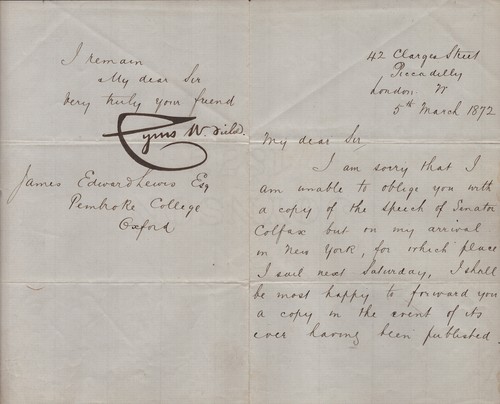 42 Clarges Street
Piccadilly
London. W
5th March 1872
My dear Sir
I am sorry that I
am unable to oblige you with
a copy of the speech of Senator
Colfax but on my arrival
in New York, for which place
I sail next Saturday, I shall
be most happy to forward you
a copy in the event of its
ever having been published
I remain
My dear Sir
Very truly your friend
Cyrus W. Field.
James Edward Lewis Esq
Pembroke College
Oxford